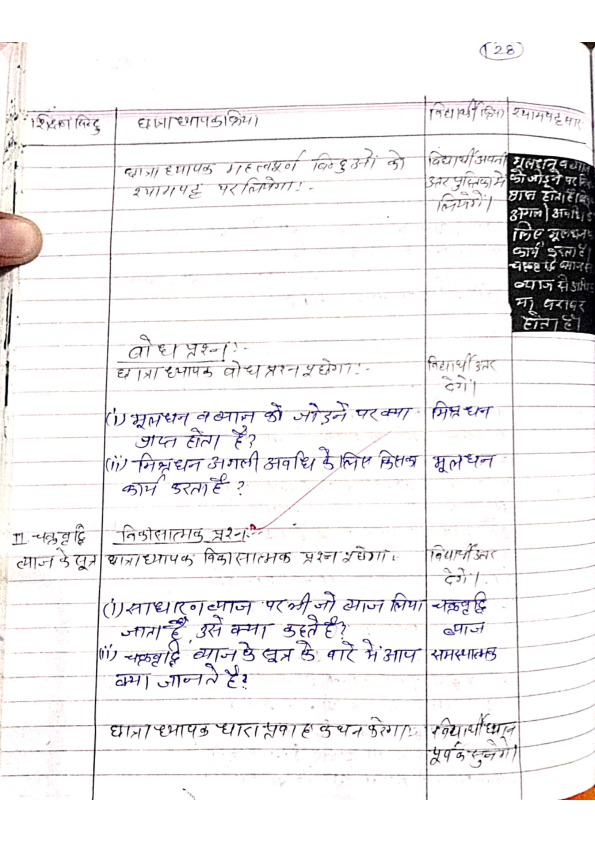 28
शिक्षण बिन्दु छात्राध्यापक क्रिया विद्यार्थी क्रिया श्यामपट्ट सार
छात्राध्यापक महत्वपूर्ण बिन्दुओ को
श्यामपट्ट पर लिखेगा:-
विद्यार्थी अपनी
उत्तर पुस्तिका मे
लिखेगें।
मूलधन व ब्याज
को जोड़ने पर
प्राप्त होता है
अगली
लिए मूलधन
कार्य करता है।
चक्रवृद्धि ब्याज
ब्याज से
या बराबर
होता है।
बोध प्रश्न:-
छात्राध्यापक बोध प्रश्न पूछेगा:- विद्यार्थी उत्तर
देगें।
(i) मूलधन व ब्याज को जोड़ने पर क्या मिश्रधन
प्राप्त होता है?
(ii) मिश्रधन अगली अवधि के लिए किसका मूलधन
कार्य करता है?
II. चक्रवृद्धि विकासात्मक प्रश्न:-
ब्याज के सूत्र छात्राध्यापक विकासात्मक प्रश्न पूछेगा:- विद्यार्थी उत्तर
देगें।
(i) साधारण ब्याज पर भी जो ब्याज लिया चक्रवृद्धि
जाता है, उसे क्या कहते है? ब्याज
(ii) चक्रवृद्धि ब्याज के सूत्र के बारे मे आप समस्यात्मक
क्या जानते है?
छात्राध्यापक धारा प्रवाह कथन करेगा:- विद्यार्थी ध्यान
पूर्वक सुनेगें।